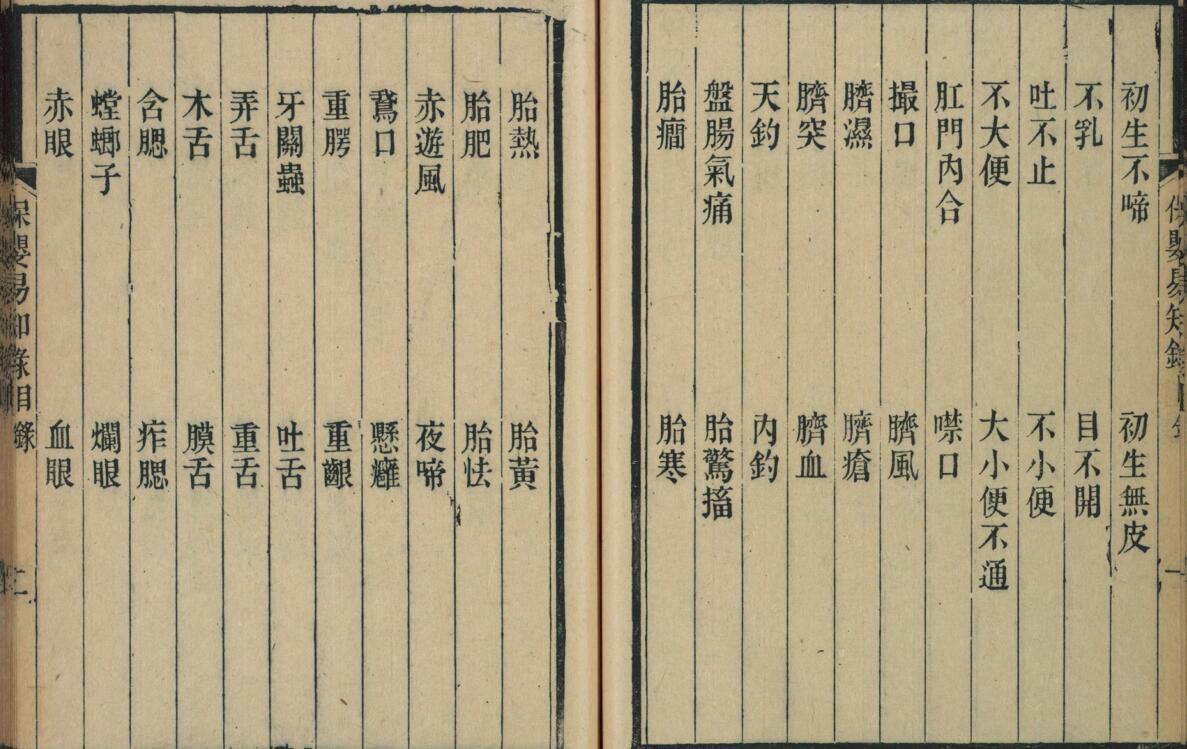 初生不啼 初生無皮
不乳 目不開
吐不止 不小便
不大便 大小便不通
肛門內合 噤口
撮口 臍風
臍濕 臍瘡
臍突 臍血
天釣 內釣
盤腸氣痛 胎驚搐
胎癎 胎寒
胎熱 胎黃
胎肥 胎怯
赤遊風 夜啼
鵞口 懸癰
重腭 重齦
牙關蟲 吐舌
弄舌 重舌
木舌 膜舌
含腮 痄腮
螳螂子 爛眼
赤眼 血眼
保嬰易知錄目錄 二